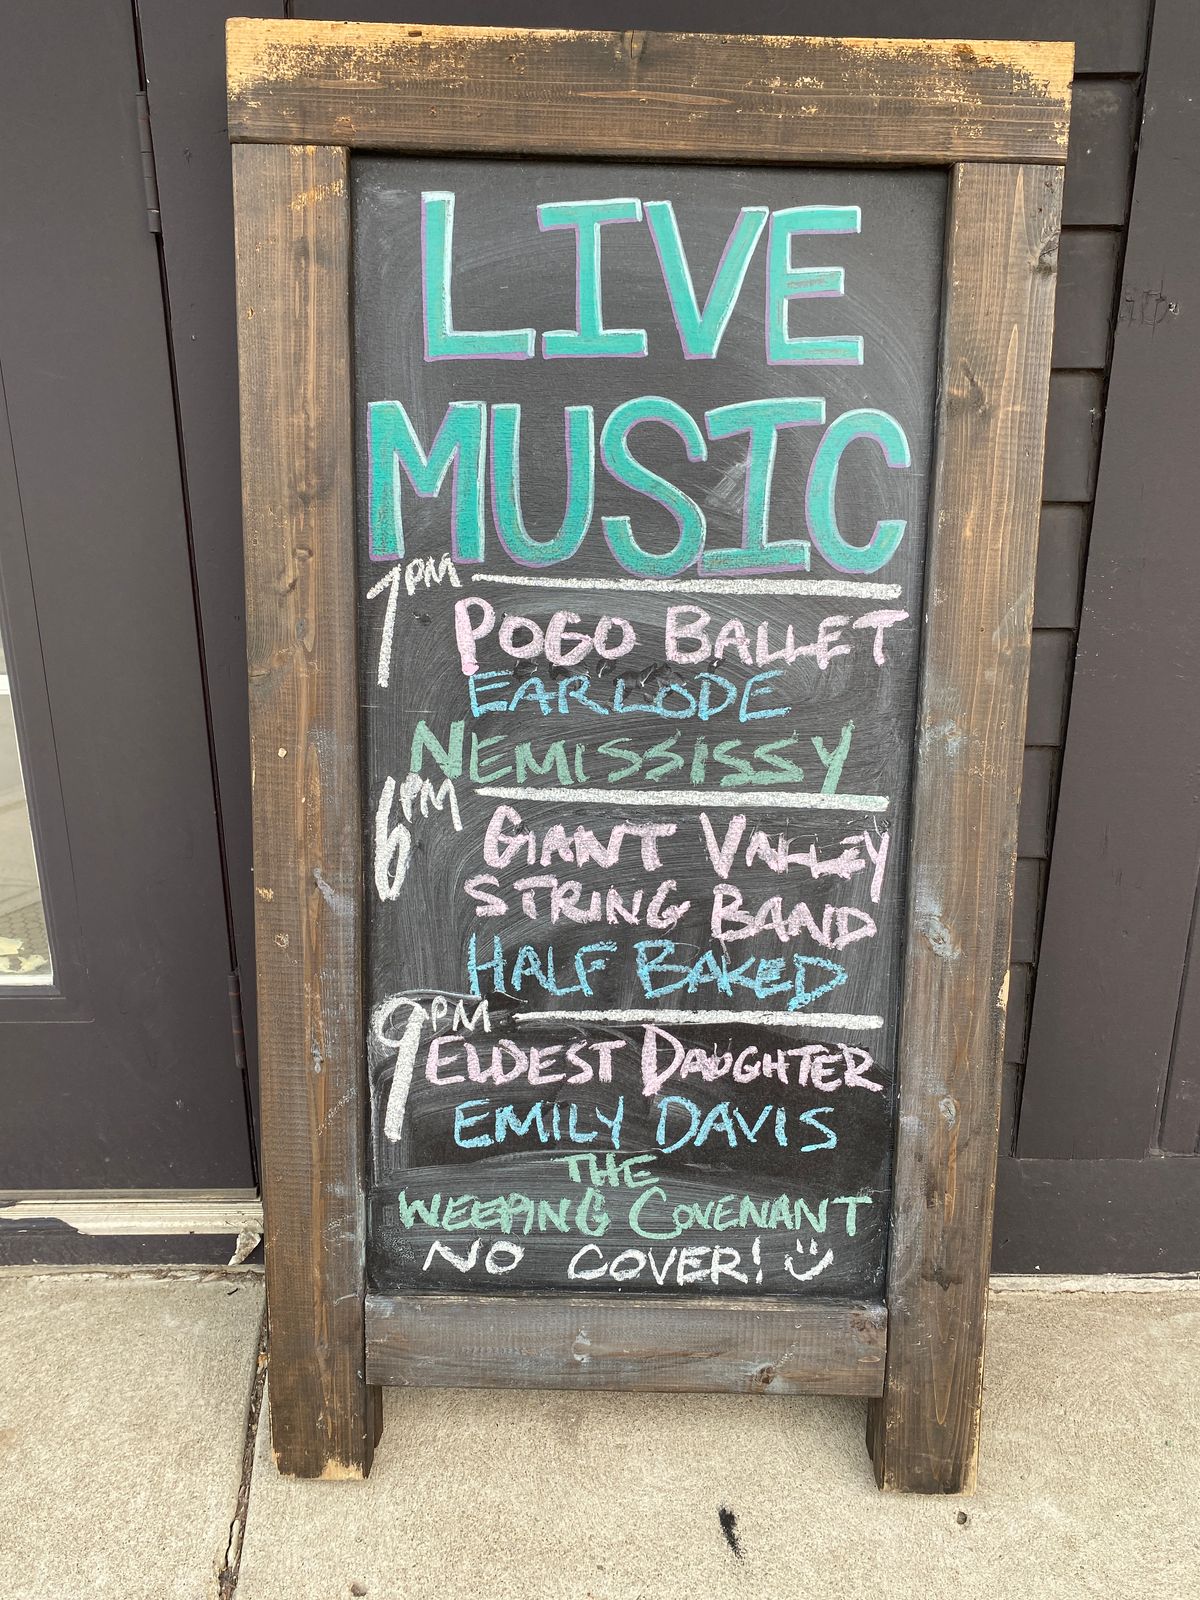 LIVE
MUSIC
7PM
POGO BALLET
EARLODE
NEMISSISSY
6PM
GIANT VALLEY
STRING BAND
HALF BAKED
9PM
ELDEST DAUGHTER
EMILY DAVIS
THE
WEEPING COVENANT
NO COVER!